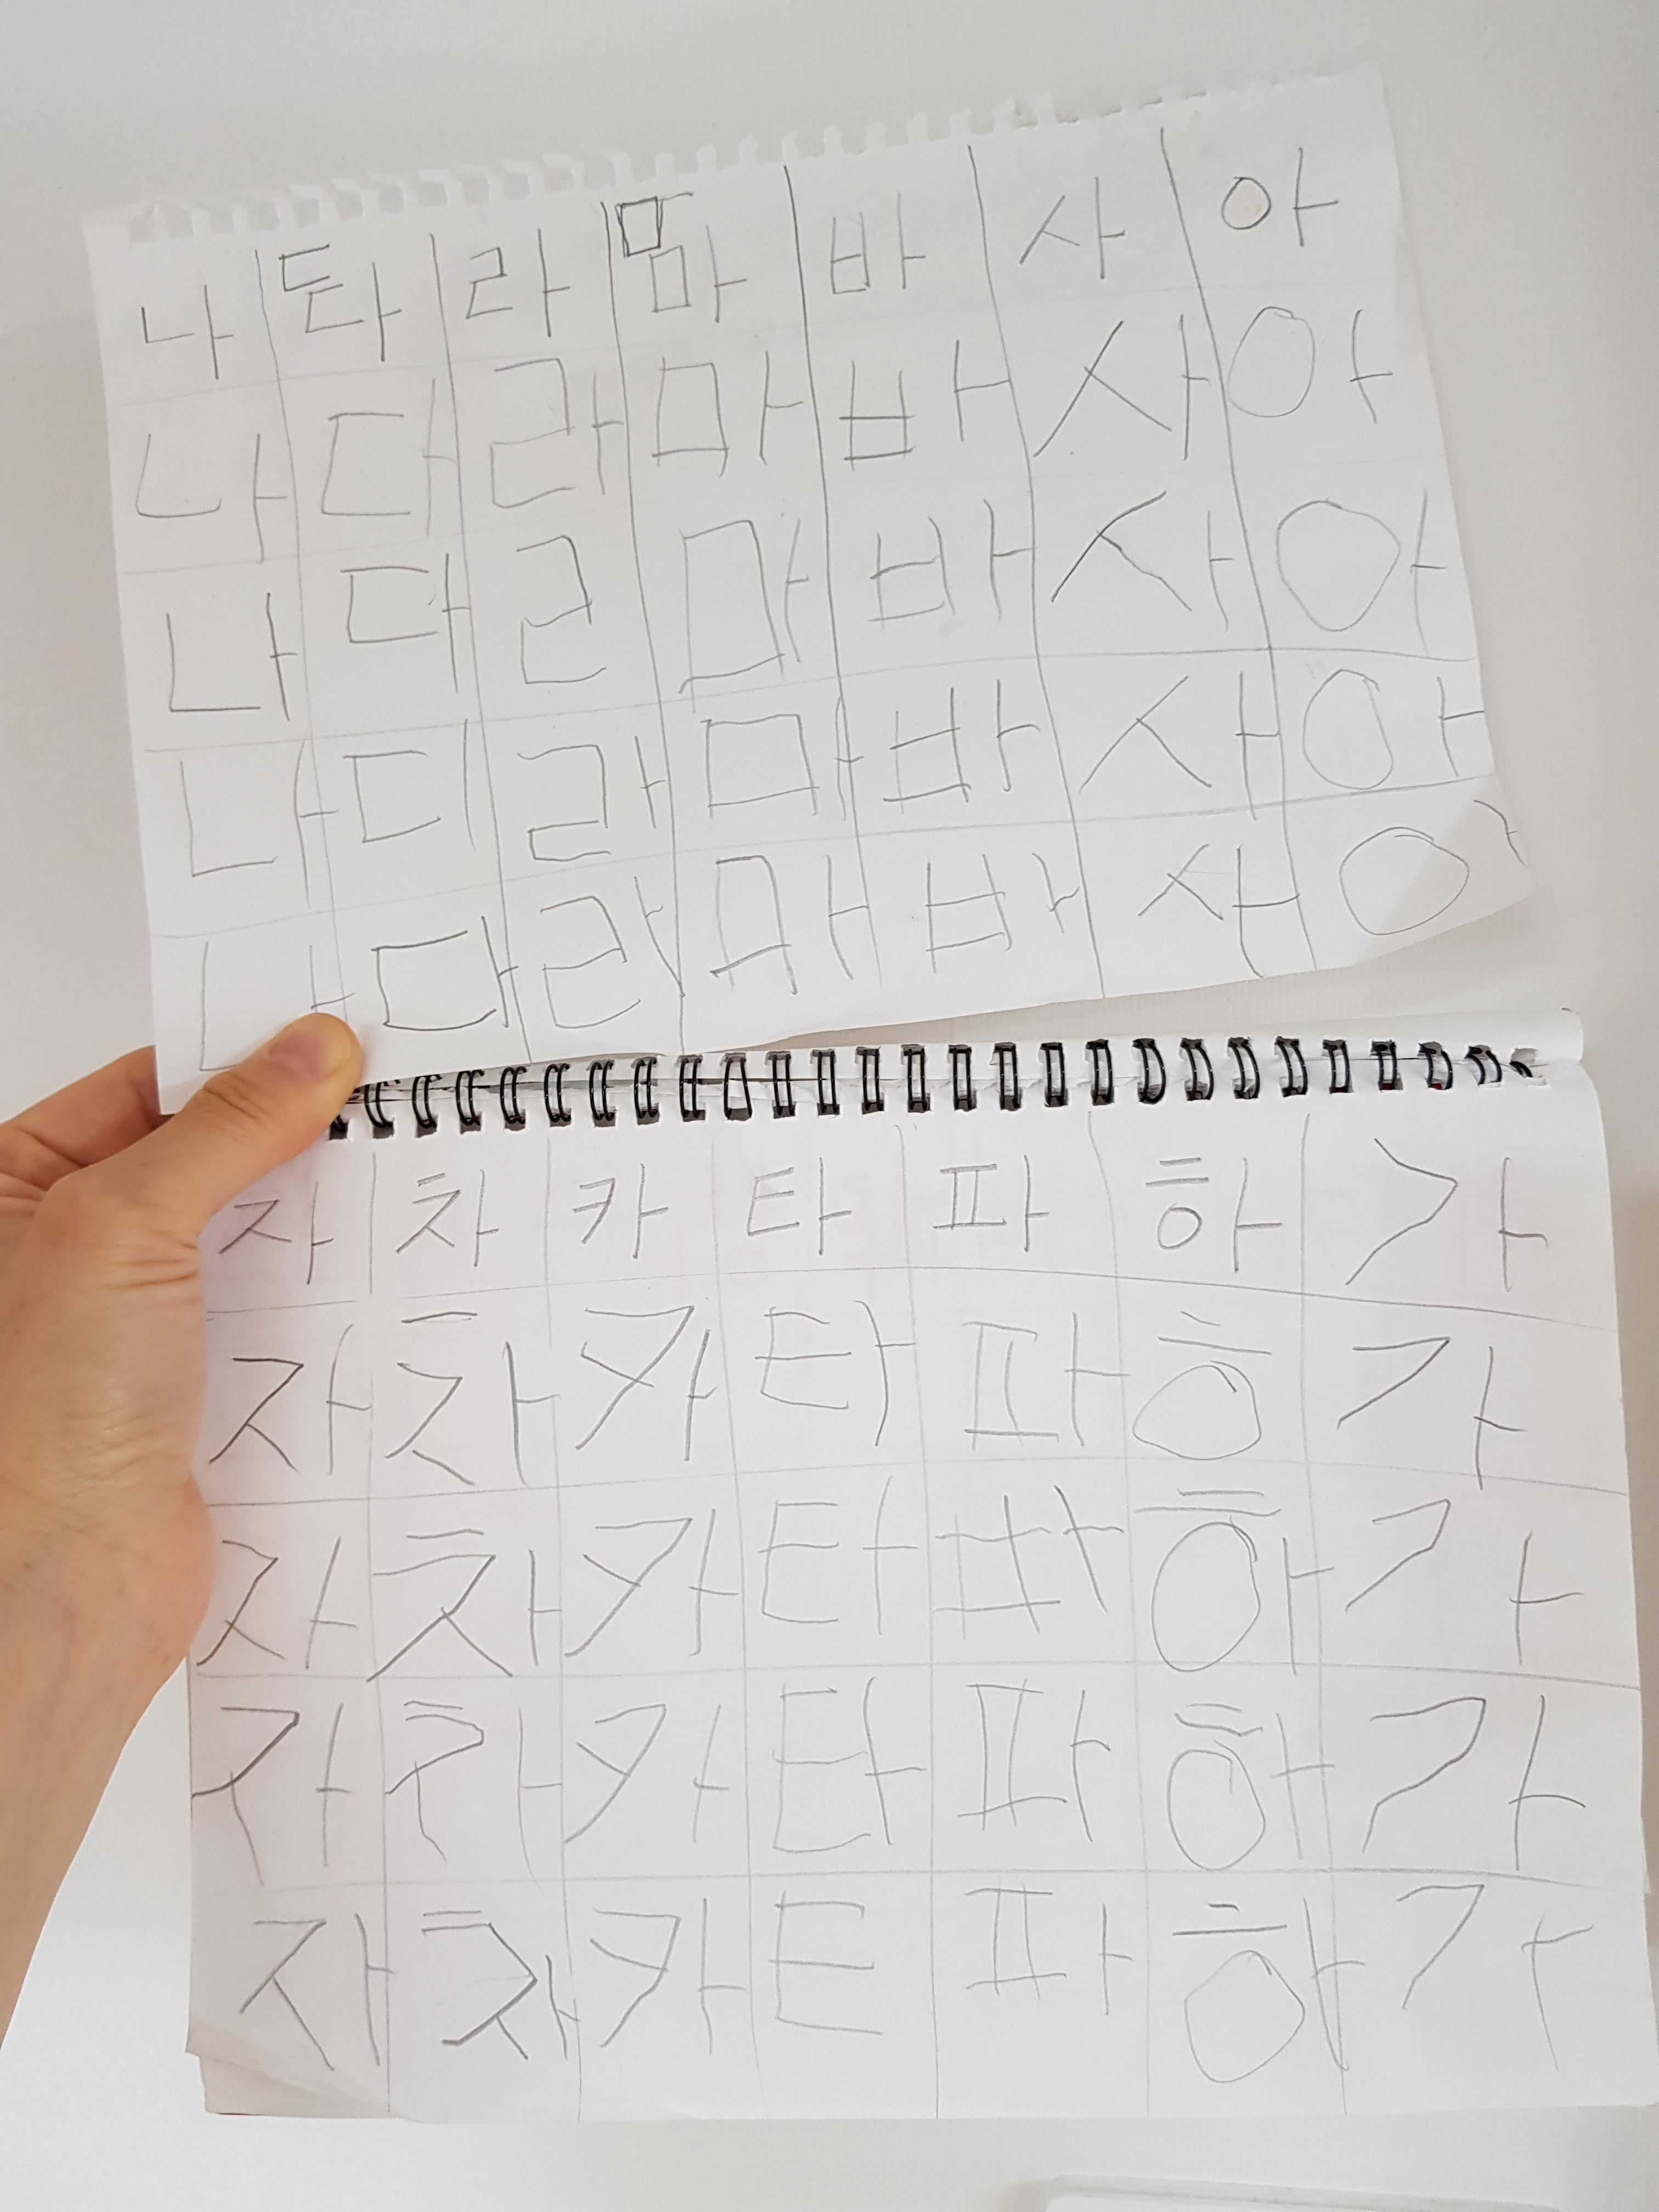 나 다 라 마 바 사 아
나 다 라 마 바 사 아
나 다 ㄹ 마 바 사 아
나 디 라 마 바 사 아
나 다 라 마 바 사 아
자 차 카 타 파 하 가
자 차 카 타 파 ㅎ 가
자 차 카 타 파 하 가
자 차 카 타 파 하 가
자 차 카 ㅌ 파 하 가